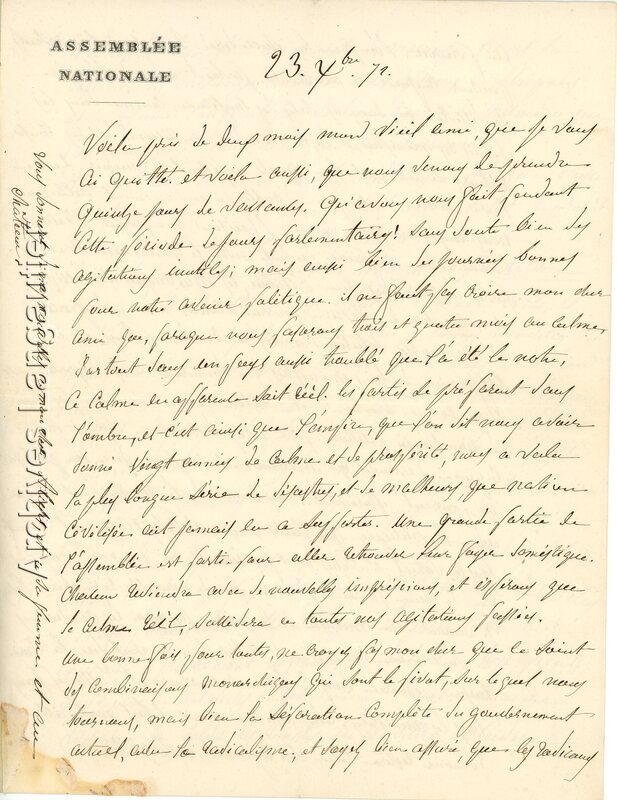 ASSEMBLÉE
NATIONALE
23. Xbre 72.
Voila près de deux mois mon vieil ami, que je vous
ai quitté. et voila aussi, que nous venons de prendre
quinze jours de vacances. Qu'avons nous fait pendant
cette période de jours parlementaires! sans doute bien des
agitations inutiles; mais aussi bien des journées bonnes
pour notre avenir politique. il ne faut pas croire mon cher
ami que, parceque nous passerons trois et quatre mois au calme,
Partout dans un pays aussi troublé que l'a été le notre,
ce calme en apparence soit réél. les partis se préparent dans
l'ombre, et c'est ainsi que l'empire, que l'on dit nous avoir
donné vingt années de calme et de prospérité, nous a valu
la plus longue série de désastres, et de malheurs que nation
civilisée ait jamais eu a supporter. Une grande partie de
l'assemblée est partie pour aller retrouver leur foyer doméstique.
Chacun reviendra avec de nouvelles impréssions, et éspérons que
le calme réél, succédera a toutes nos agitations passées.
une bonne fois pour toutes, ne croyez pas mon cher que ce soient
des combinaisons monarchiques qui sont le pivot, sur lequel nous
tournons, mais bien la séparation complète du gouvernement
actuel, avec le radicalisme, et soyez bien assuré, que les radicaux
Vous donnent à votre femme et au